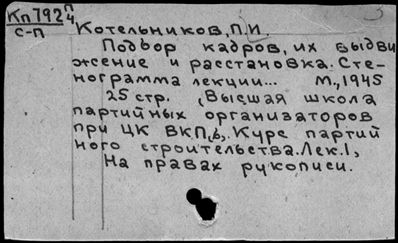 Кп792 п/4
с-п
Котельников, П.И.
Подбор кадров, их выдви
жение и расстановка. Сте-
нограмма лекции... М., 1945
25 стр. (Высшая школа
партийных организаторов
при ЦК ВКП/б/. Курс партий
ного строительства. Лек.1)
На правах рукописи.